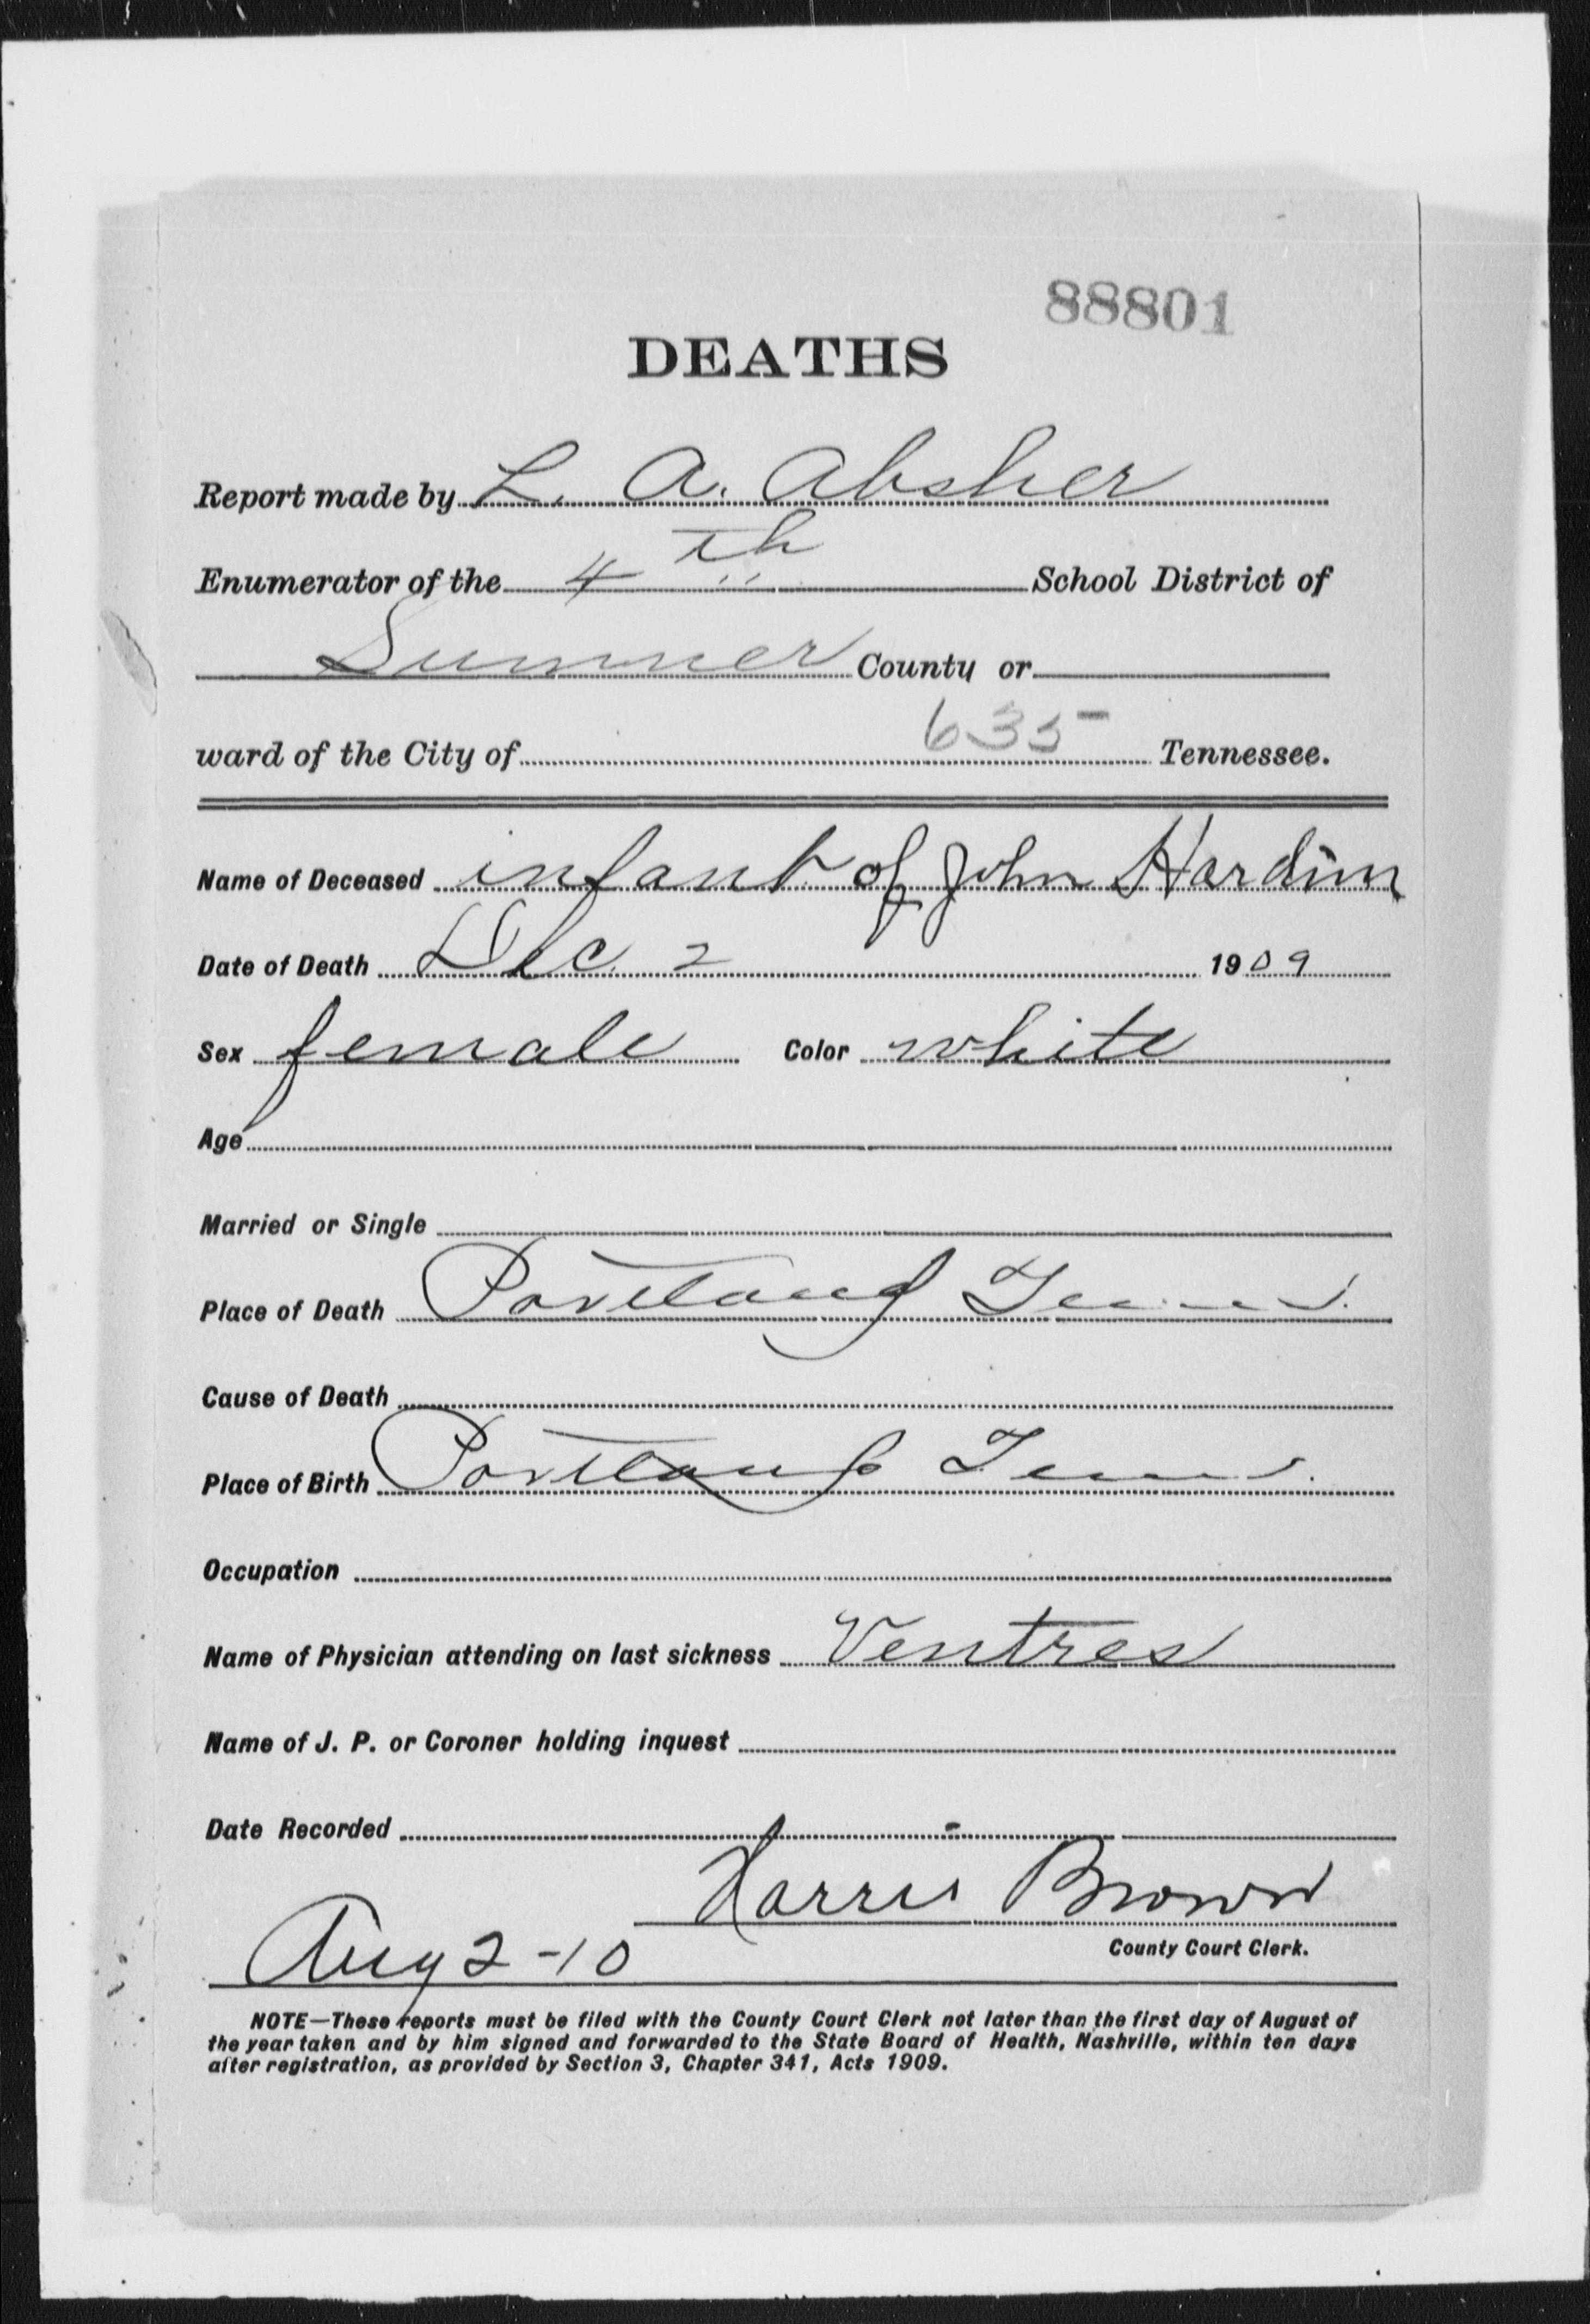 88801
DEATHS
Report made by L. A. Absher
Enumerator of the 4th School District of
Sumner County or
ward of the City of 635 Tennessee.
Name of Deceased infant of John Hardin
Date of Death Dec. 2 1909
Sex female Color white
Age
Married or Single
Place of Death Portland Tenn.
Cause of Death
Place of Birth Portland Tenn.
Occupation
Name of Physician attending on last sickness Ventres
Name of J. P. or Coroner holding inquest
Date Recorded
Harris Brown
Aug 2-10 County Court Clerk.
NOTE—These reports must be filed with the County Court Clerk not later than the first day of August of
the year taken and by him signed and forwarded to the State Board of Health, Nashville, within ten days
after registration, as provided by Section 3, Chapter 341, Acts 1909.